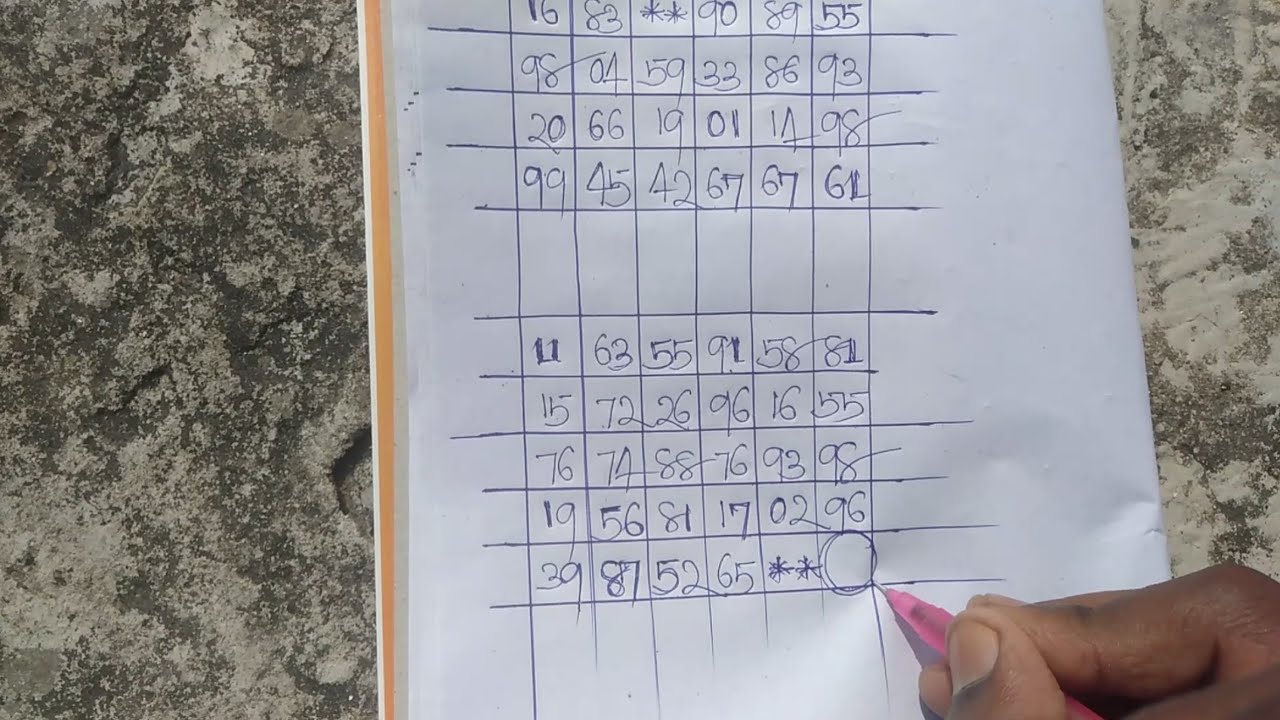 16 83 ** 90 89 55
98 04 59 33 86 93
20 66 19 01 14 98
99 45 42 67 67 61
11 63 55 91 58 81
15 72 26 96 16 55
76 74 88 76 93 98
19 56 81 17 02 96
39 87 52 65 **